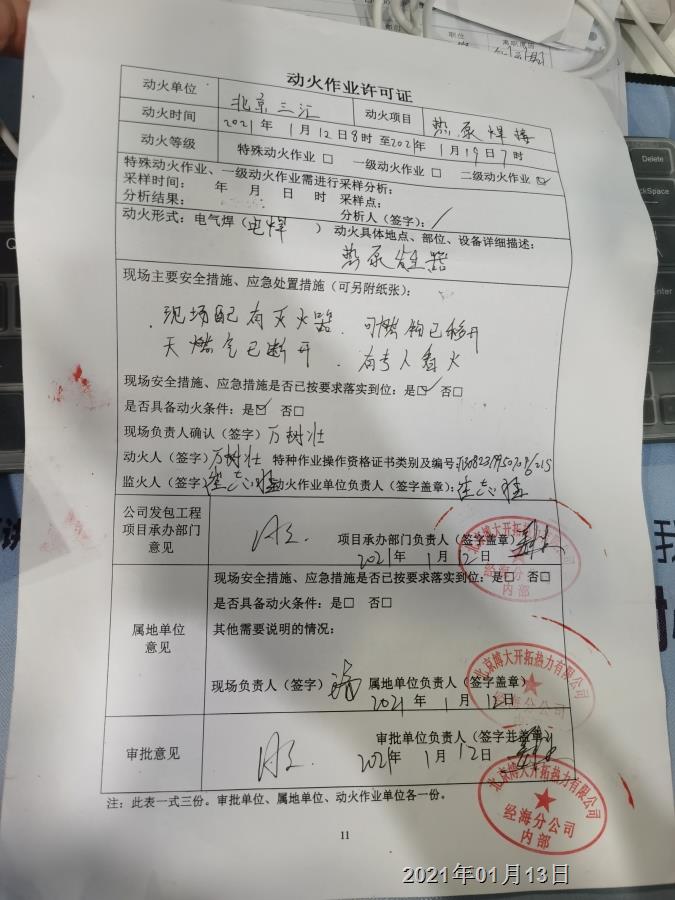 动火作业许可证
动火单位 北京三江 动火项目 热泵焊接
动火时间 2021年1月12日8时至2021年1月19日7时
动火等级 特殊动火作业□ 一级动火作业□ 二级动火作业☑
特殊动火作业、一级动火作业需进行采样分析:
采样时间: 年 月 日 时 采样点:
分析结果: 分析人(签字):/
动火形式:电气焊(电焊 ) 动火具体地点、部位、设备详细描述:
热泵发生器
现场主要安全措施、应急处置措施(可另附纸张):
现场配有灭火器 可燃物已移开
天燃气已断开 有专人看火
现场安全措施、应急措施是否已按要求落实到位:是☑ 否□
是否具备动火条件:是☑ 否□
现场负责人确认(签字)万树壮
动火人(签字)万树壮 特种作业操作资格证书类别及编号:
监火人(签字) 动火作业单位负责人(签字盖章):
公司发包工程
项目承办部门
意见
项目承办部门负责人(签字盖章)
2021年1月12日
北京博大开拓热力有限公司
经海分公司
内部
属地单位
意见
现场安全措施、应急措施是否已按要求落实到位:是□ 否□
是否具备动火条件:是□ 否□
其他需要说明的情况:
现场负责人(签字) 属地单位负责人(签字盖章)
2021年1月12日
北京博大开拓热力有限公司
经海分公司
审批意见
审批单位负责人(签字并盖章)
2021年1月12日
北京博大开拓热力有限公司
经海分公司
内部
注:此表一式三份。审批单位、属地单位、动火作业单位各一份。
11
Delete
BackSpace
2021年01月13日